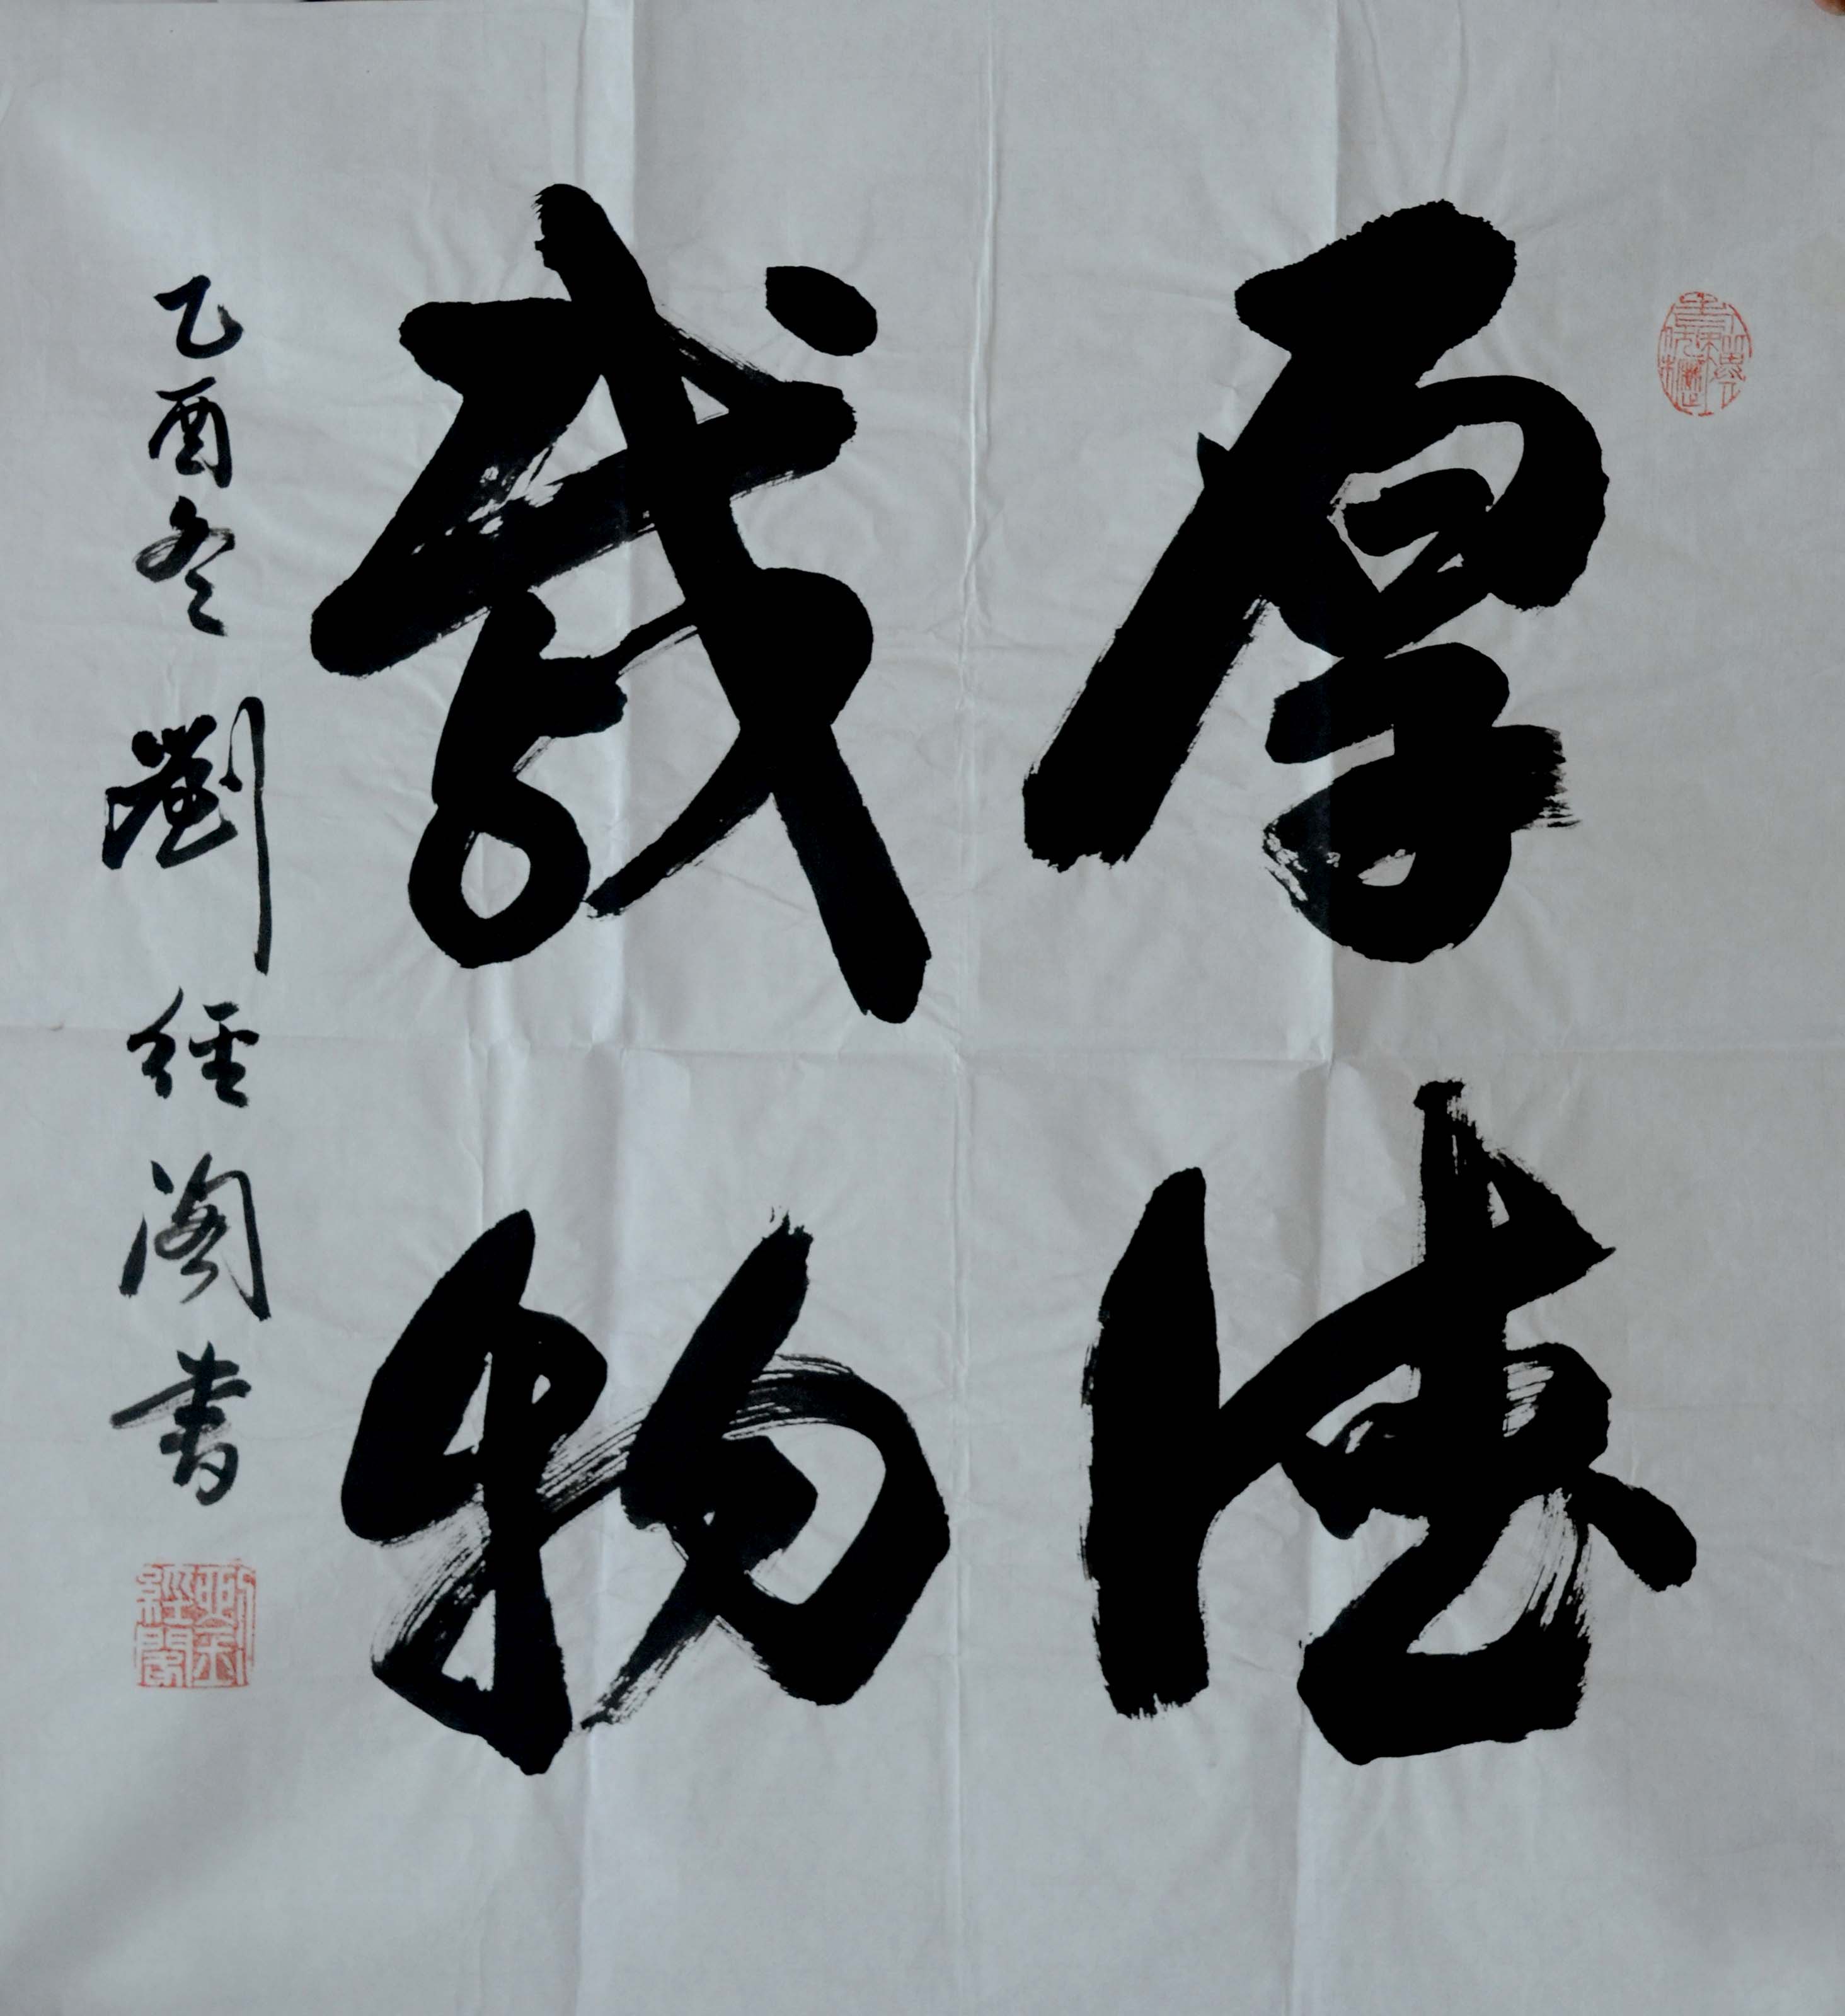 厚德
載物
乙酉冬 劉經閣書